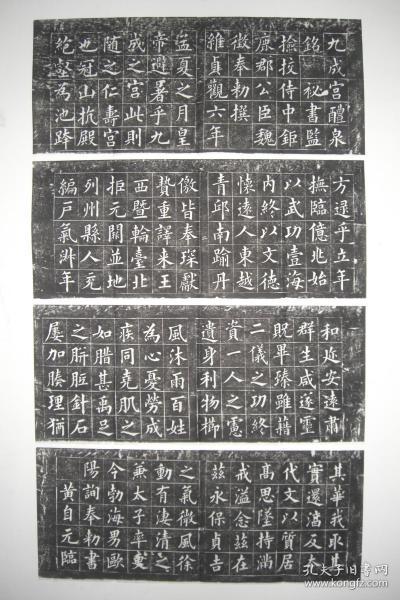 九成宮醴泉
銘 秘書監
撿挍侍中鉅
鹿郡公臣魏
徵奉勑撰
維貞觀六年
孟夏之月皇
帝避暑乎九
成之宮此則
隨之仁壽宮
也冠山抗殿
絶壑為池跨
方逞乎立年
撫臨億兆始
以武功壹海
内終以文德
懷遠人東越
青邱南踰丹
儌皆奉琛獻
贄重譯来王
西暨輪臺北
拒元闕並地
列州縣人充
編戶氣淑年
和迩安遠肅
群生咸遂靈
貺畢臻雖藉
二儀之功終
資一人之慮
遺身利物櫛
風沐雨百姓
為心憂勞成
疾同堯肌之
如腊甚禹足
之胼胝針石
屢加腠理猶
其華我取其
實還淳反本
代文以質居
髙思墜持滿
戒溢念兹在
兹永保貞吉
之氣微風徐
動有淒清之
兼太子率更
令勃海男歐
陽詢奉勑書
黄自元臨
孔夫子旧书网
www.kongfz.com